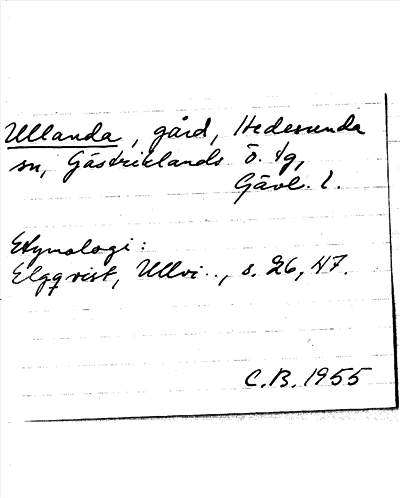 Ullanda, gård, Hedesunda
sn, Gästriklands Ö. tg,
Gävl. l.
Etymologi:
Elgqvist, Ullvi.., s. 26, 47.
C.B. 1955